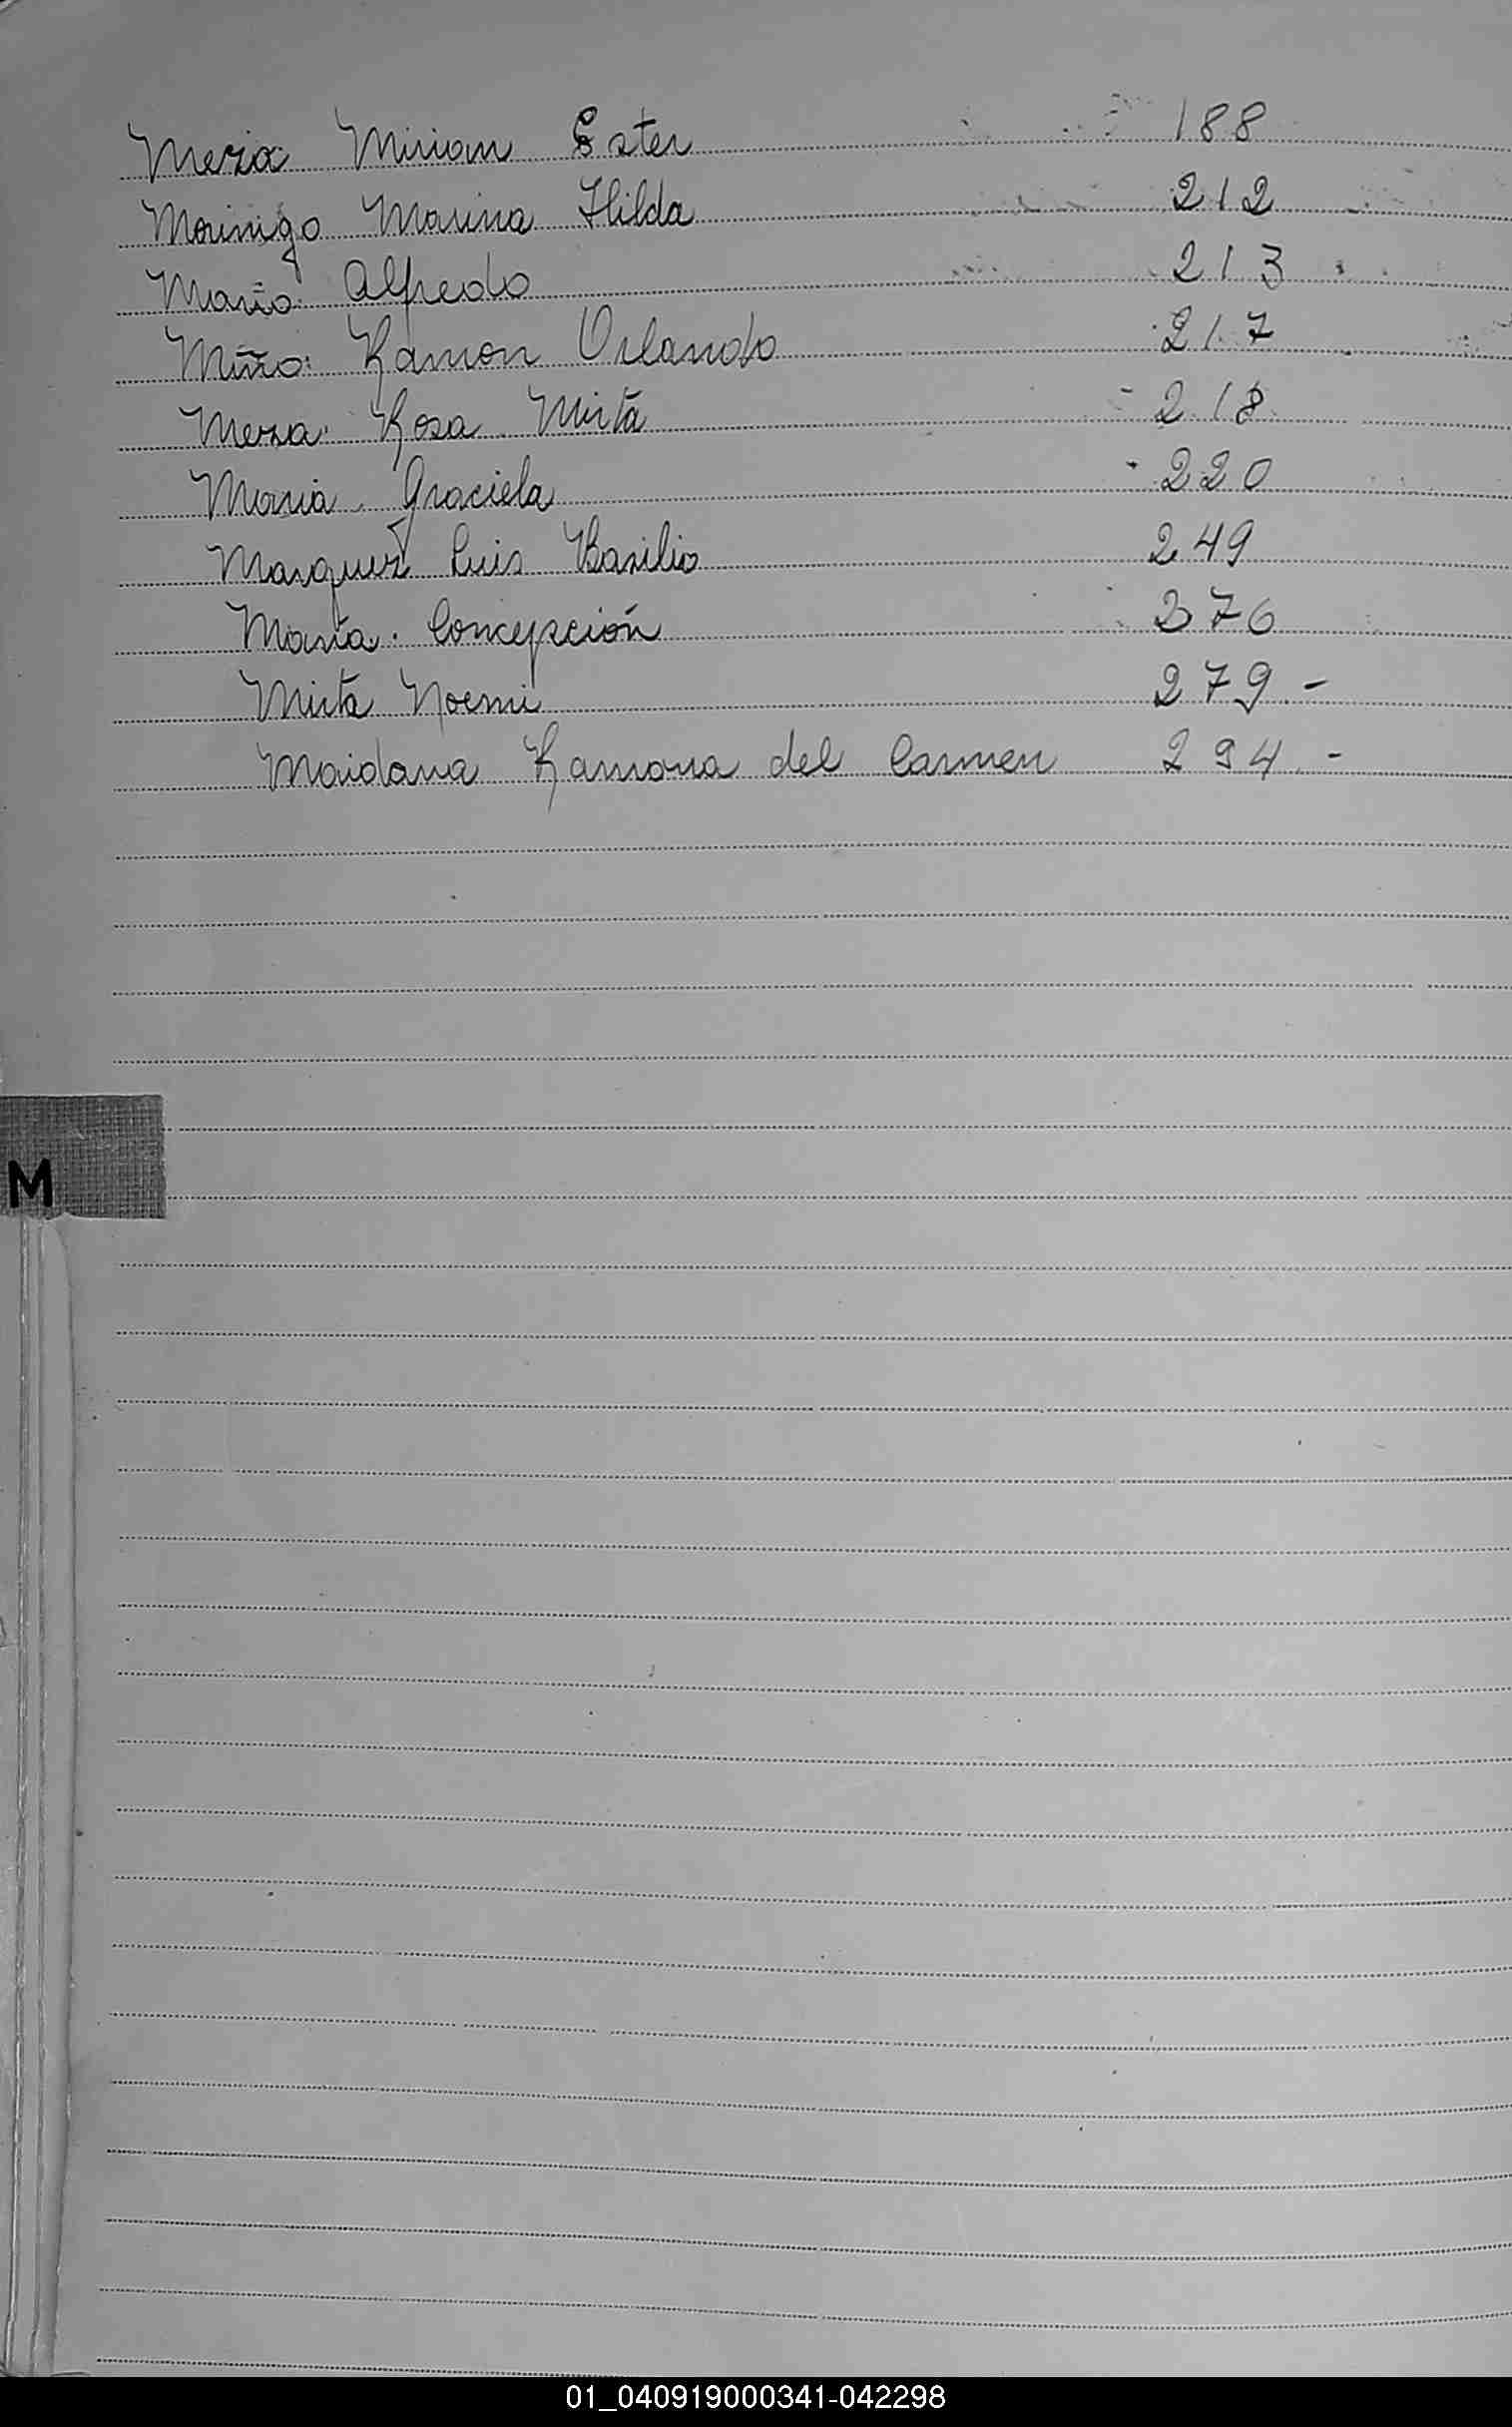 Meza Miriam Ester 188
Morinigo Marina Hilda 212
Mario Alfredo 213
Miño Ramon Orlando 217
Meza Rosa Mirta 218
Maria Graciela 220
Marquez Luis Basilio 249
María Concepción 276
Mirta Noemi 279 -
Maidana Ramona del Carmen 294 -
M
01_040919000341-042298